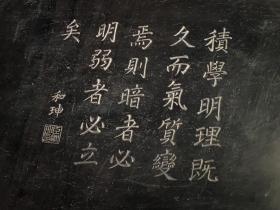 積學明理既
久而氣質變
焉則暗者必
明弱者必立
矣
和珅